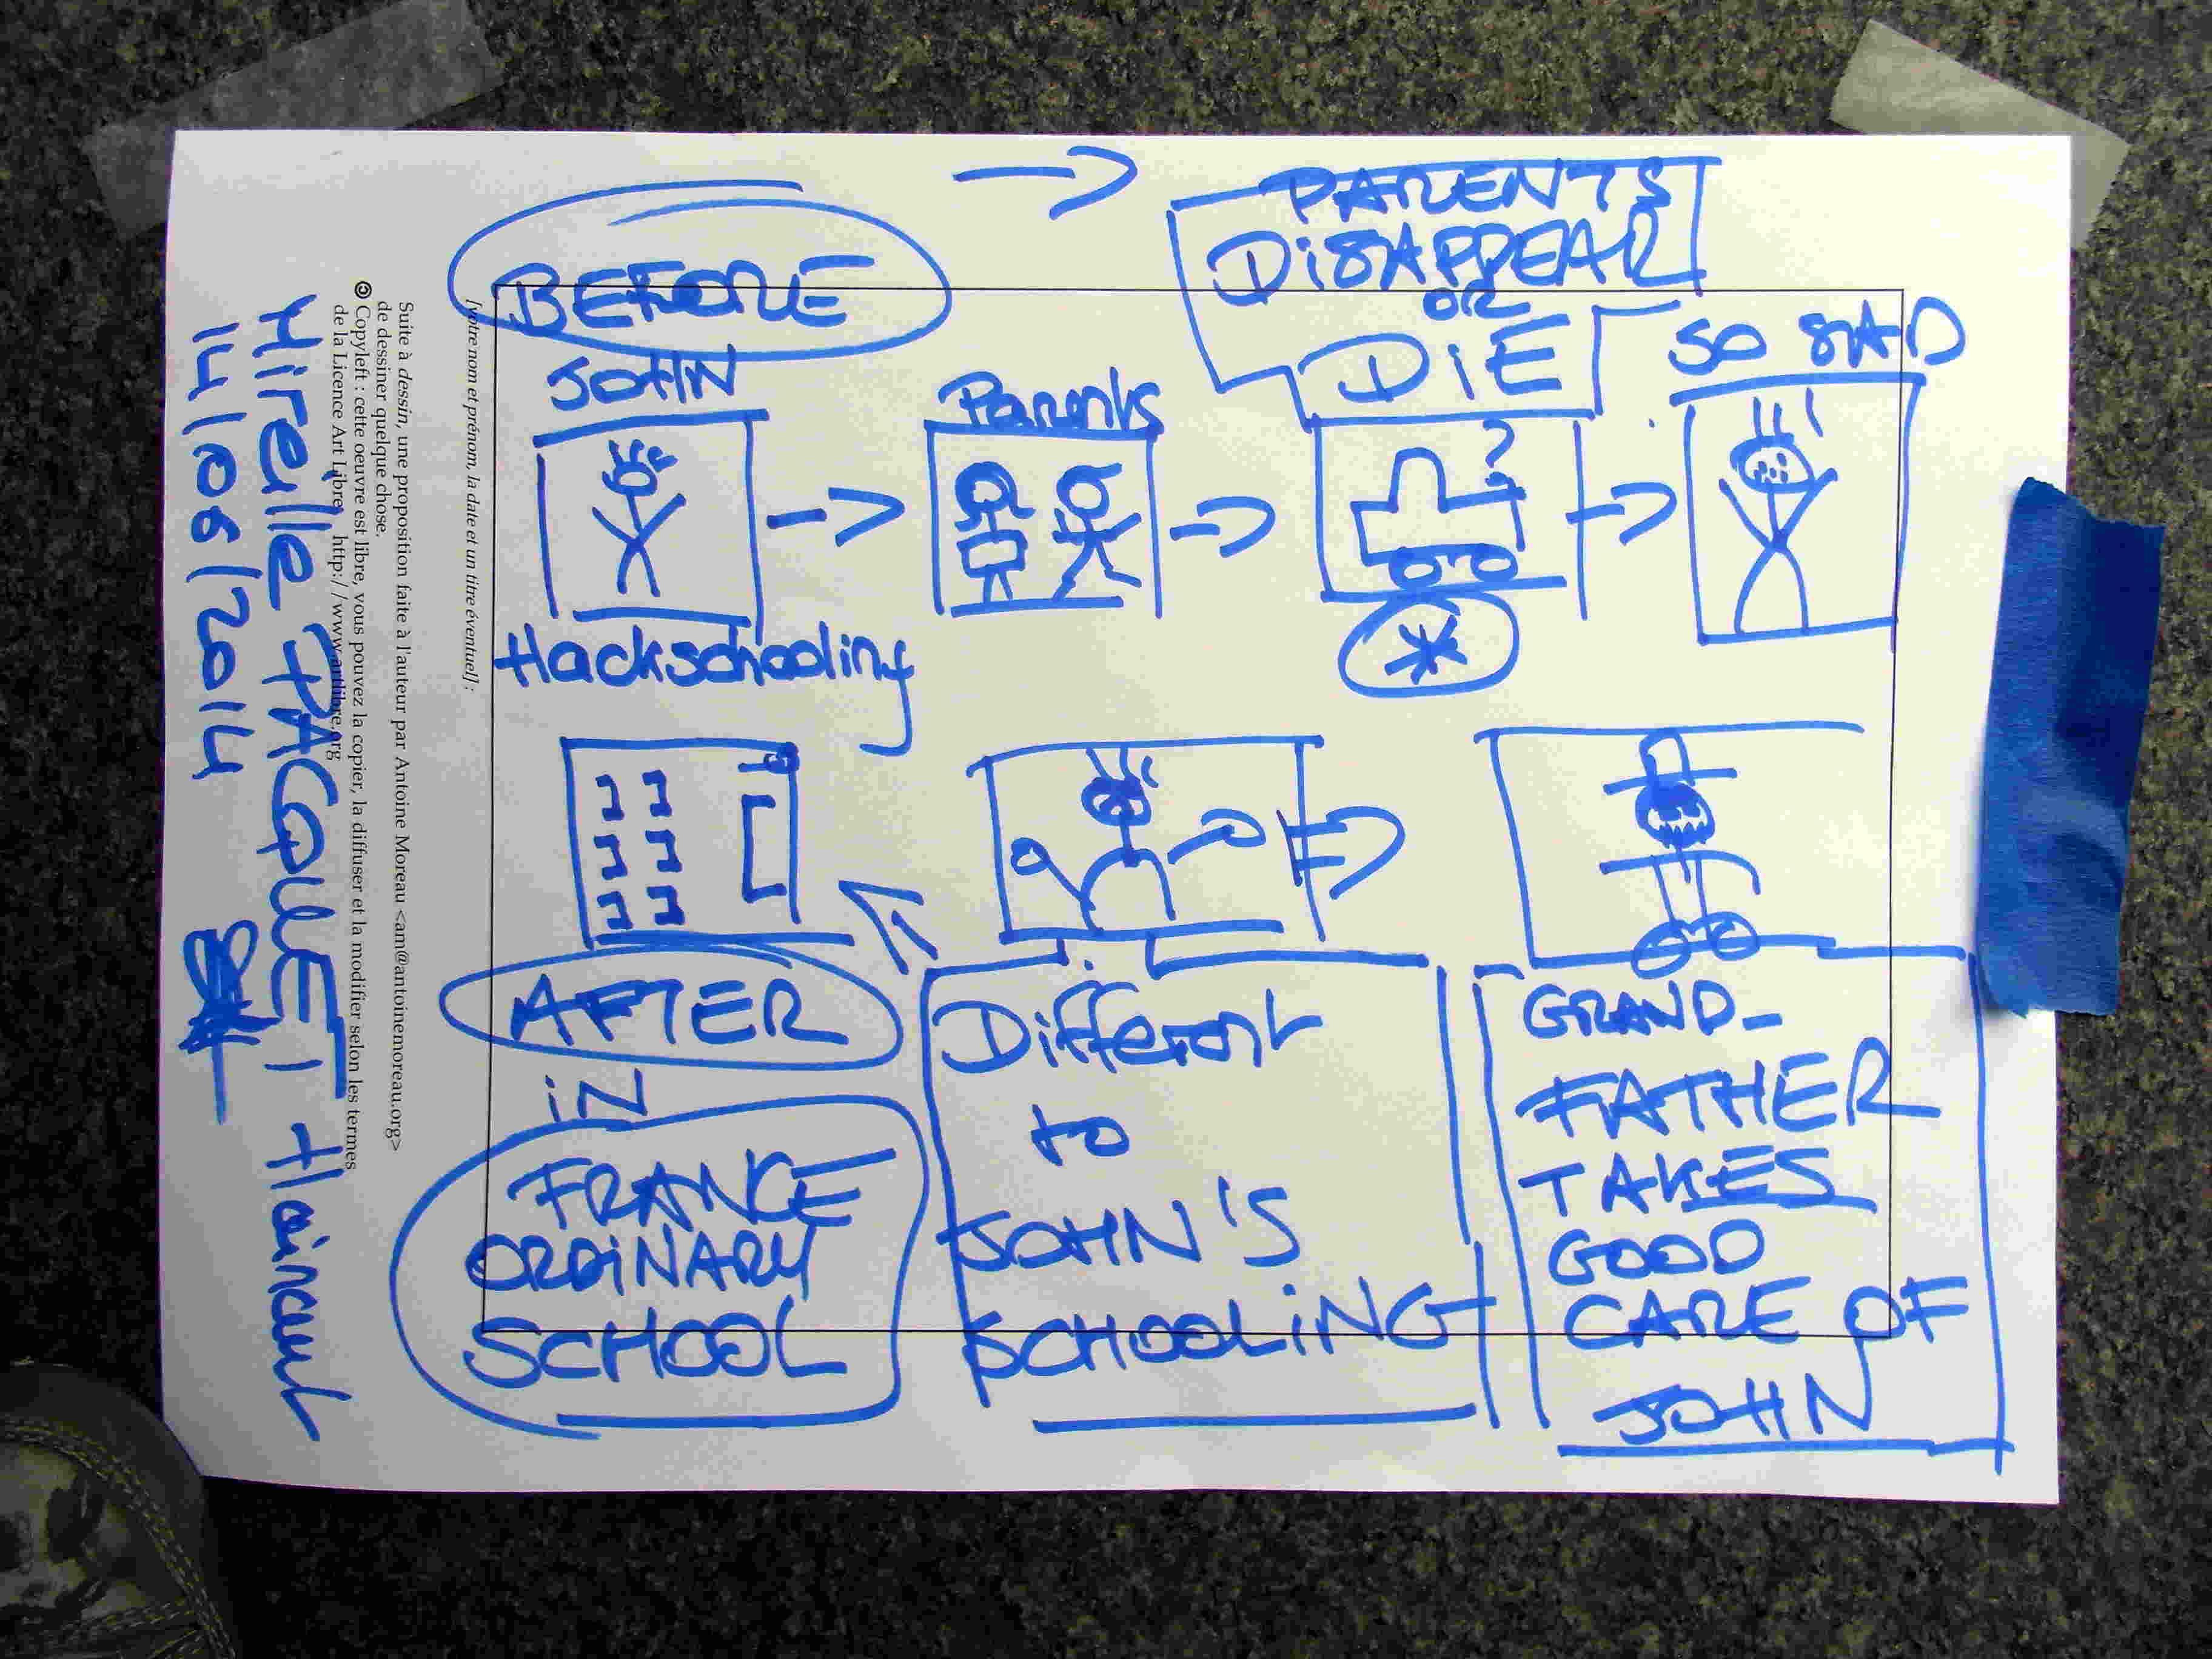 BEFORE
PARENTS
DISAPPEAR
OR
DIE
SO SAD
JOHN
Parents
?
Hackschooling
AFTER
iN
FRANCE
ORDINARY
SCHOOL
Different
to
JOHN'S
SCHOOLING
GRAND-
FATHER
TAKES
GOOD
CARE OF
JOHN
[votre nom et prénom, la date et un titre éventuel] :
Suite à dessin, une proposition faite à l'auteur par Antoine Moreau <am@antoinemoreau.org>
de dessiner quelque chose.
Copyleft : cette oeuvre est libre, vous pouvez la copier, la diffuser et la modifier selon les termes
de la Licence Art Libre http://www.artlibre.org
Mireille PACQUET Hainaut
14/06/2014